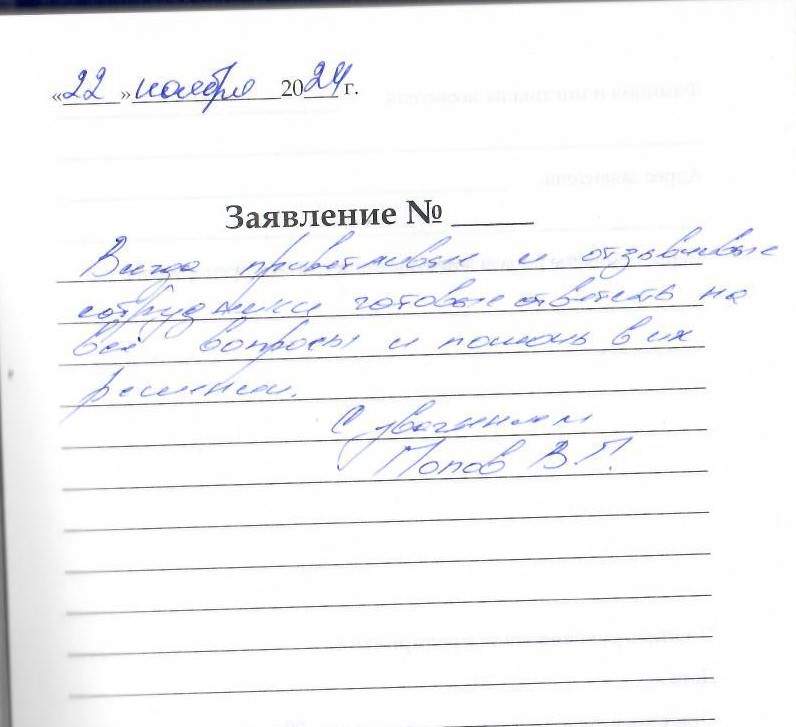 «22» ноября 2024 г.
Заявление № _____
Всегда приветливые и отзывчивые
сотрудники готовые ответить на
все вопросы и помочь в их
решении.
С уважением
Попов В.П.